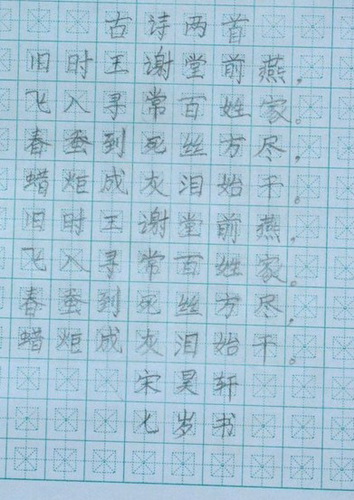 古诗两首
旧时王谢堂前燕，
飞入寻常百姓家。
春蚕到死丝方尽，
蜡炬成灰泪始干。
旧时王谢堂前燕，
飞入寻常百姓家。
春蚕到死丝方尽，
蜡炬成灰泪始干。
宋昊轩
七岁书